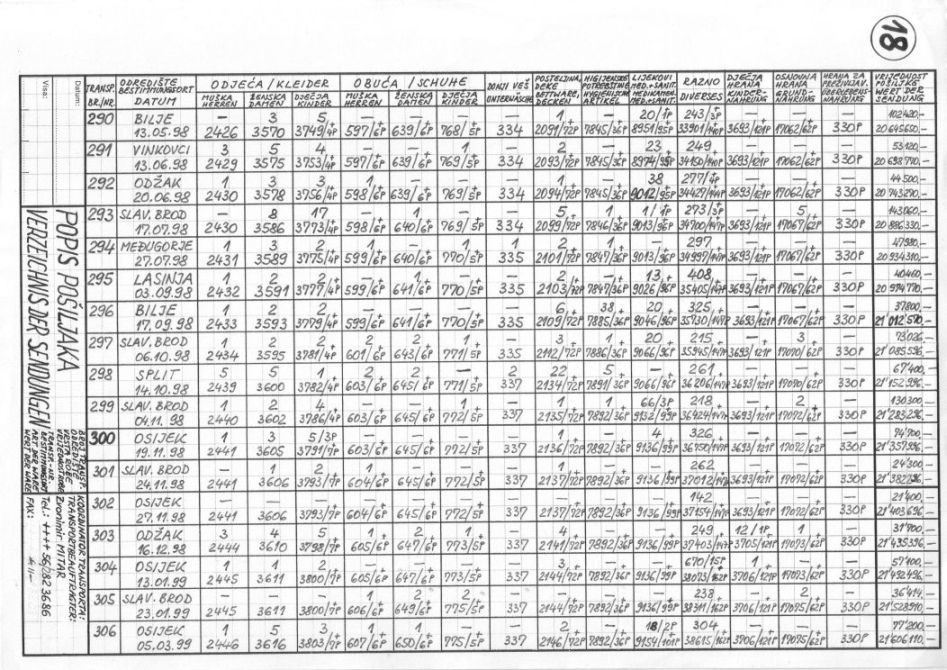 18
TRANSP. BR./NR. ODREDIŠTE BESTIMMUNGSORT DATUM ODJEĆA / KLEIDER MUŠKA HERREN ŽENSKA DAMEN DJEČJA KINDER OBUĆA / SCHUHE MUŠKA HERREN ŽENSKA DAMEN DJEČJA KINDER DONJI VEŠ UNTERWÄSCHE POSTELJINA, DEKE BETTWARE, DECKEN HIGIJENSKE POTREBŠTINE HYGIENISCHE ARTIKEL LIJEKOVI MED.+SANIT. MEDIKAMEN. MED.+SANIT. RAZNO DIVERSES DJEČJA HRANA KINDER-NAHRUNG OSNOVNA HRANA GRUND-NAHRUNG HRANA ZA PREŽIVLJAV. ÜBERLEBENS-NAHRUNG VRIJEDNOST POŠILJKE WERT DER SENDUNG
290 BILJE — 3 5 — — — — 1 — 20/1P 243/3P — — — 102'420,—
13.05.98 2426 3570 3749/4P 597/6P 639/6P 768/5P 334 2091/72P 7845/36P 8951/95P 33901/140P 3693/121P 17062/62P 330P 20'645'650,—
291 VINKOVCI 3 5 4 — — 1 — 2 — 23 249 — — — 53'120,—
13.06.98 2429 3575 3753/4P 597/6P 639/6P 769/5P 334 2093/72P 7845/36P 8974/95P 34150/140P 3693/121P 17062/62P 330P 20'698'770,—
292 ODŽAK 1 3 3 1 — — — 1 — 38 277/4P — — — 44'500,—
20.06.98 2430 3578 3756/4P 598/6P 639/6P 769/5P 334 2094/72P 7845/36P 9012/95P 34427/144P 3693/121P 17062/62P 330P 20'743'270,—
293 SLAV. BROD — 8 17 — 1 — — 5 1 1/1P 273/3P — 5 — 143'060,—
17.07.98 2430 3586 3773/4P 598/6P 640/6P 769/5P 334 2099/72P 7846/36P 9013/96P 34700/147P 3693/121P 17067/62P 330P 20'886'330,—
294 MEĐUGORJE 1 3 2 1 — 1 1 2 1 — 297 — — — 47'980,—
27.07.98 2431 3589 3775/4P 599/6P 640/6P 770/5P 335 2101/72P 7847/36P 9013/96P 34997/147P 3693/121P 17067/62P 330P 20'934'310,—
295 LASINJA 1 2 2 — 1 — — 2 — 13 408 — — — 40'460,—
03.09.98 2432 3591 3777/4P 599/6P 641/6P 770/5P 335 2103/72P 7847/36P 9026/96P 35405/147P 3693/121P 17067/62P 330P 20'974'770,—
296 BILJE 1 2 2 — — — — 6 38 20 325 — — — 37'800,—
17.09.98 2433 3593 3779/4P 599/6P 641/6P 770/5P 335 2109/72P 7885/36P 9046/96P 35730/147P 3693/121P 17067/62P 330P 21'012'570,—
297 SLAV. BROD 1 2 2 2 2 1 — 3 1 20 215 — 3 — 73'026,—
06.10.98 2434 3595 3781/4P 601/6P 643/6P 771/5P 335 2112/72P 7886/36P 9066/96P 35945/147P 3693/121P 17070/62P 330P 21'085'596,—
298 SPLIT 5 5 1 2 2 — 2 22 5 — 261 — — — 67'400,—
14.10.98 2439 3600 3782/4P 603/6P 645/6P 771/5P 337 2134/72P 7891/36P 9066/96P 36206/147P 3693/121P 17070/62P 330P 21'152'996,—
299 SLAV. BROD 1 2 4 — — 1 — 1 1 66/3P 218 — 2 — 130'300,—
04.11.98 2440 3602 3786/4P 603/6P 645/6P 772/5P 337 2135/72P 7892/36P 9132/99P 36424/147P 3693/121P 17072/62P 330P 21'283'296,—
300 OSIJEK 1 3 5/3P — — — — 1 — 4 326 — — —
19.11.98 2441 3605 3791/7P 603/6P 645/6P 772/5P 337 2136/72P 7892/36P 9136/99P 36750/147P 3693/121P 17072/62P 330P 21'357'996,—
301 SLAV. BROD — 1 2 1 — — — 1 — — 262 — — — 24'300,—
24.11.98 2441 3606 3793/7P 604/6P 645/6P 772/5P 337 2137/72P 7892/36P 9136/99P 37012/147P 3693/121P 17072/62P 330P
302 OSIJEK — — — — — — — — — — 142 — — — 21'400,—
27.11.98 2441 3606 3793/7P 604/6P 645/6P 772/5P 337 2137/72P 7892/36P 9136/99P 37154/147P 3693/121P 17072/62P 330P 21'403'696,—
303 ODŽAK 3 4 5 1 2 1 — 4 — — 249 12/1P 1 — 31'700,—
16.12.98 2444 3610 3798/7P 605/6P 647/6P 773/5P 337 2141/72P 7892/36P 9136/99P 37403/147P 3705/121P 17073/62P 330P 21'435'396,—
304 OSIJEK 1 1 2 — — — — 3 — — 670/15P 1 — — 57'100,—
13.01.99 2445 3611 3800/7P 605/6P 647/6P 773/5P 337 2144/72P 7892/36P 9136/99P 38073/162P 3706/121P 17073/62P 330P 21'492'496,—
305 SLAV. BROD — — — 1 2 2 — — — — 238 — 2 — 36'414,—
23.01.99 2445 3611 3800/7P 606/6P 649/6P 775/5P 337 2144/72P 7892/36P 9136/99P 38311/162P 3706/121P 17075/62P 330P 21'528'910,—
306 OSIJEK 1 5 3 1 1 — — 2 — 18/2P 304 — — — 77'200,—
05.03.99 2446 3616 3803/7P 607/6P 650/6P 775/5P 337 2146/72P 7892/36P 9154/101P 38615/162P 3706/121P 17075/62P 330P 21'606'110,—
Datum:
Visa:
POPIS POŠILJAKA
VERZEICHNIS DER SENDUNGEN
BROJ TRANSP.
ODREDIŠTE
VRSTA ROBE
VRIJEDNOST ROBE
TRANSP.-NR.
BESTIMMUNGSORT
ART DER WARE
WERT DER WARE
KOORDINATOR TRANSPORTA:
TRANSPORTBEAUFTRAGTER:
Zvonimir MITAR
Tel.: ++++ 56/82 3686
FAX: